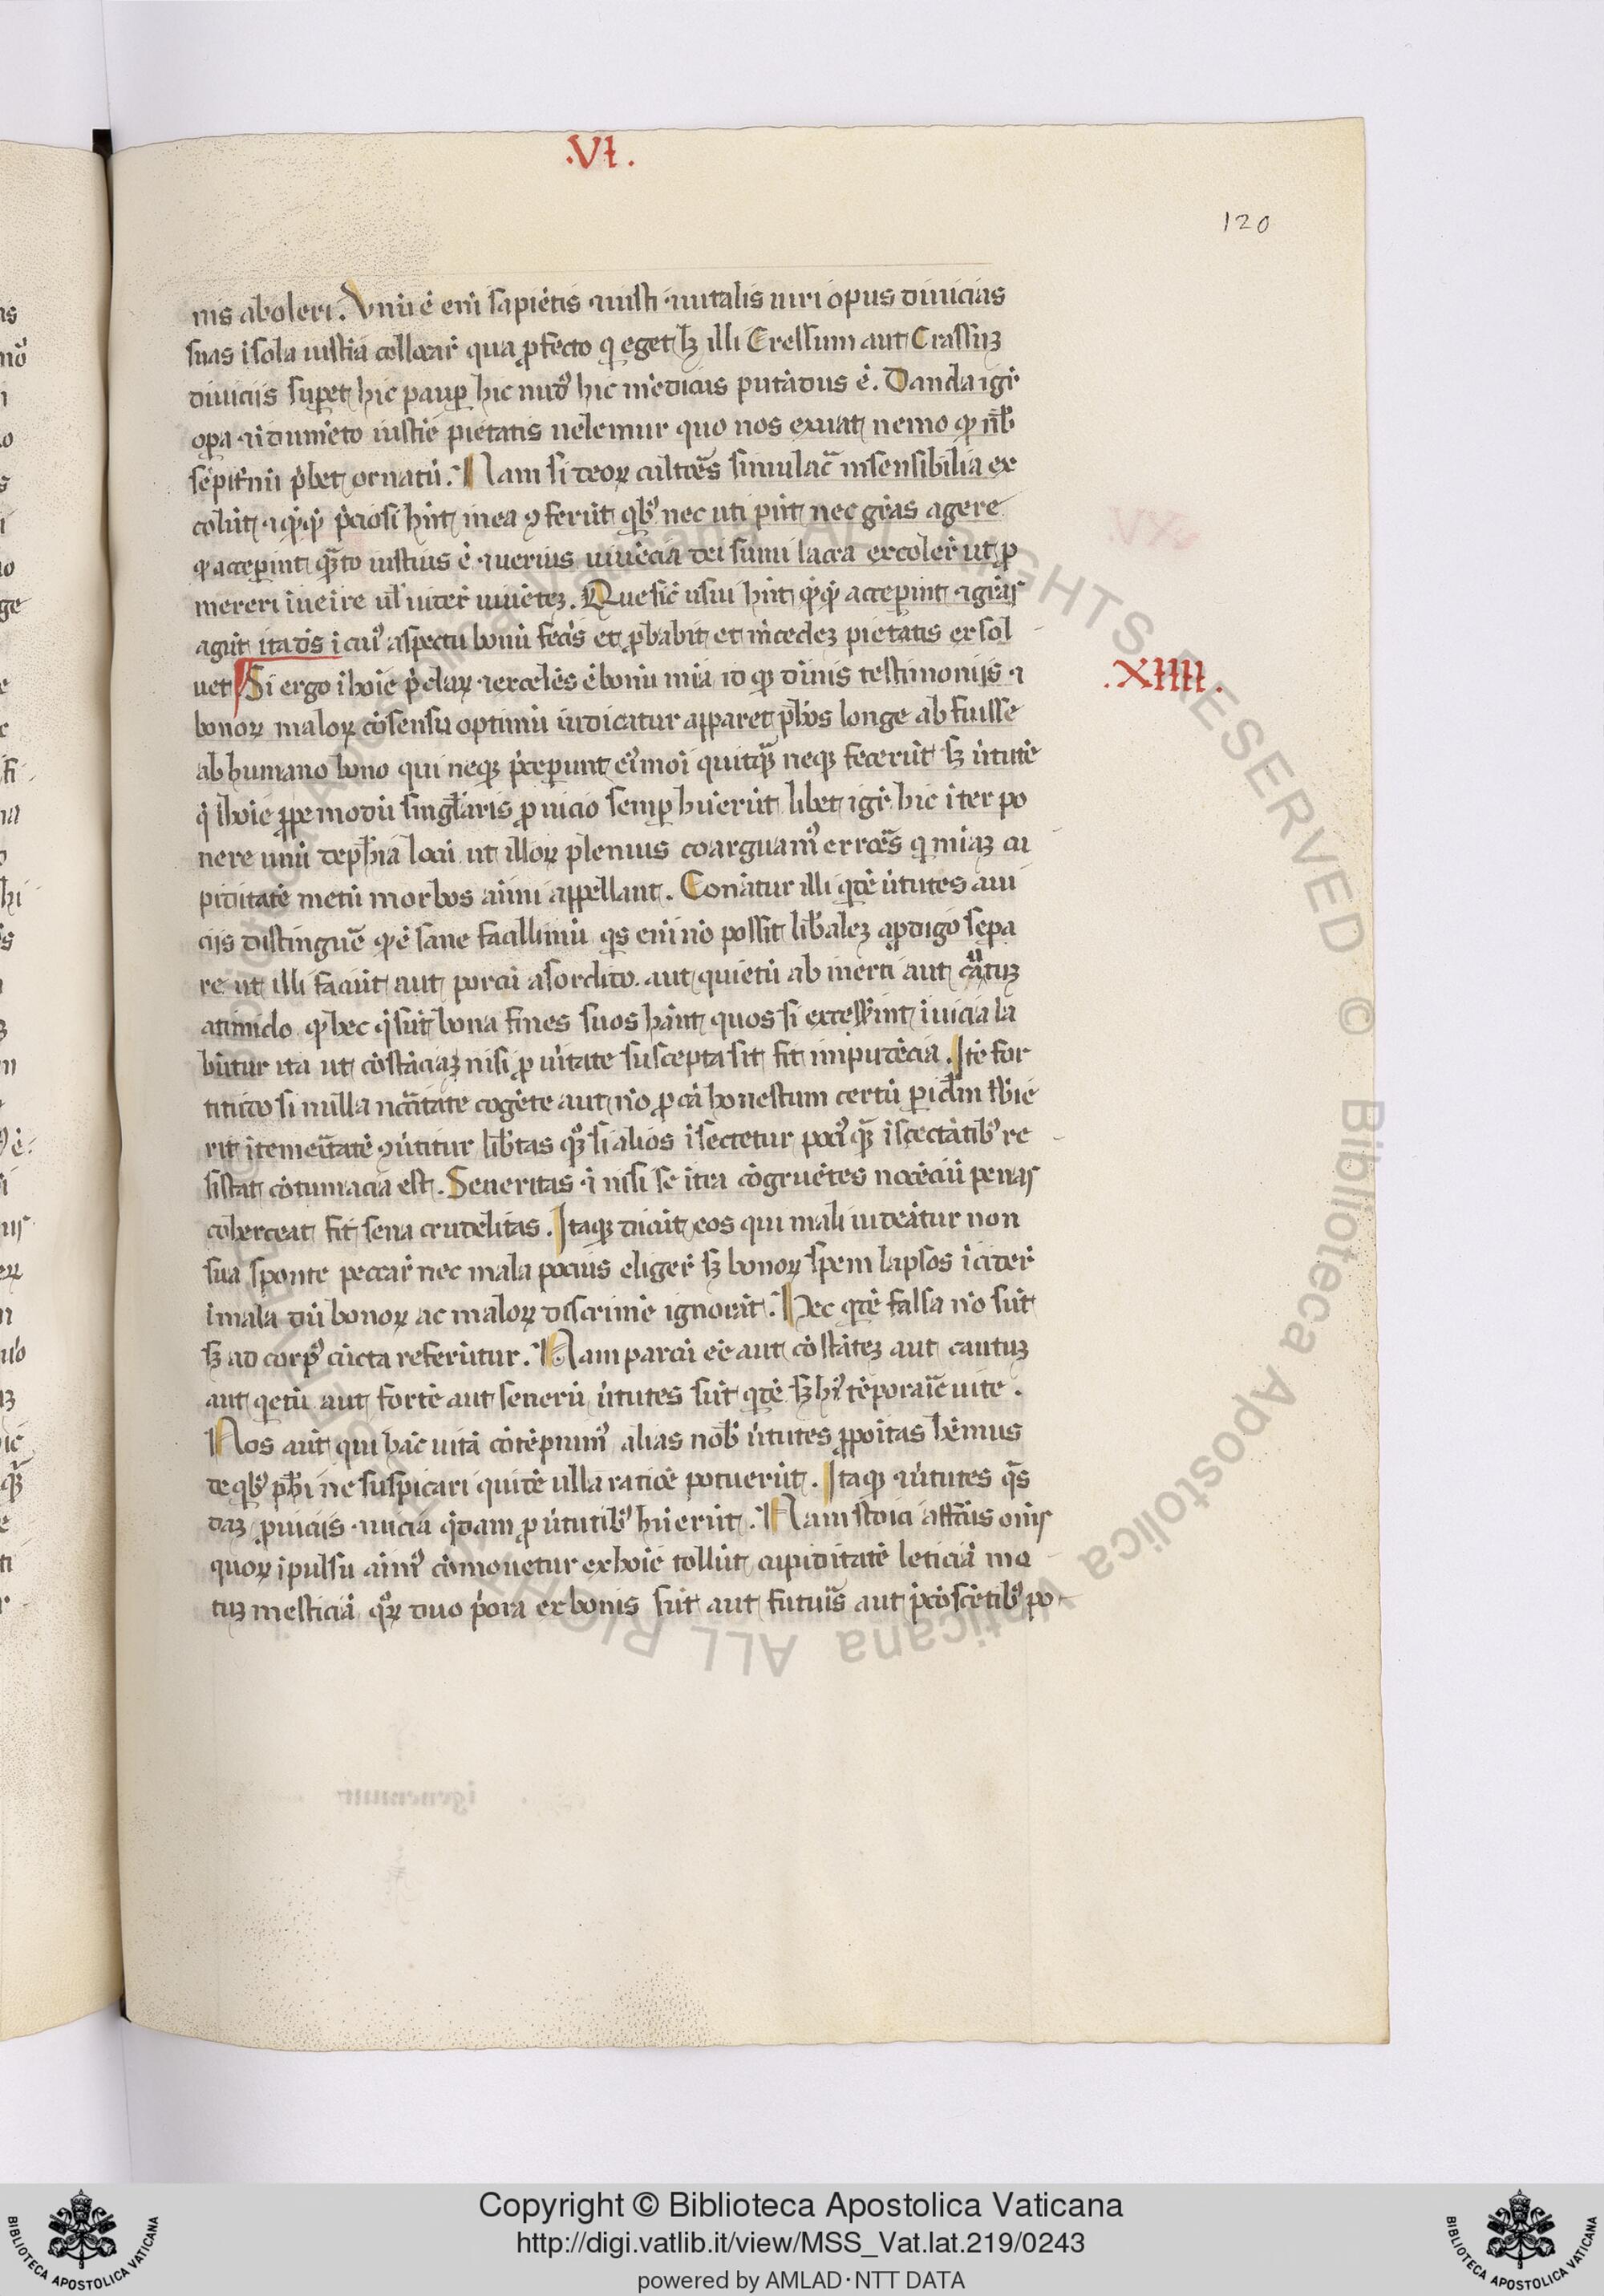 .VI.
120
nis aboleri. Vnū ē eni sapiētis ⁊ iusti ⁊ uitalis uiri opus diuicias
suas ī sola iusticia collocar̄ qua ꝓfecto q̇ eget lꝫ illi Cressum aut Crassuꝫ
diuiciis suꝑet hic pauꝑ hic nudꝰ hic mēdicus putādus ē. Danda igr̄
oꝑa ⁊ īdumēto iusticie pietatis uelemur quo nos exuat nemo qđ nb̄
sēpitnū p̄bet ornatū. Nam si deoꝝ cultores simulac̄ insensibilia ex
colūt ⁊ qͥqͥd p̄ciosi hn̄t in ea ꝯferūt qͥbꝰ nec uti pn̄t nec grās agere
qđ acceperint quāto iustius ē ⁊ uerius uiuēcia dei simulacra excoler̄ ut ꝓ
mereri uiuētē. Que sic̄ usui hn̄t qͥqͥd acceperint ⁊ grās
agūt ita ds̄ ī cuiꝰ aspectu bonū fecis et ꝓbabit et m̄cedeꝫ pietatis exsol
uet Si ergo ī hoīe p̄claꝝ ⁊ excelēs ē bonū mīa id qꝫ diuinis testimoniis ⁊
bonoꝝ maloꝝ cōsensu optimū iudicatur apparet ph̄os longe abfuisse
ab humano bono qui neqꝫ p̄ceperunt eiꝰmōi quitqͣꝫ neqꝫ fecerūt sꝫ ūtutē
q̇ ī hoīe ꝓpemodū singl̄aris ꝓ uicio semꝑ habuerūt libet igr̄ hic īter po
nere unū de ph̄ia locū ut illoꝝ plenius coarguamꝰ errores q̇ mīaꝫ cu
piditatē metū morbos aīmi appellant. Conātur illi qͥdē ūtutes a ui
ciis distinguē qđ ē sane facillimū qͥs eni nō possit lib̄aleꝫ a ꝓdigo sepa
re ut illi faciūt aut parcū a sordido aut quietū ab inerti aut cautuꝫ
a timido qđ hec q̇ sūt bona fines suos hānt quos si excesserint ī uicia la
būtur ita ut cōstāciaꝫ nisi ꝓ ūitate suscepta sit fit impudēcia. Itē for
titudo si nulla necītate cogēte aut nō ꝓ cā honestum certū periculum subie
rit ī temeitatē ꝯūtitur libertas quoqꝫ si alios īsectetur pociꝰ qͣꝫ īsectātibꝰ re
sistat cōtumacia est. Seueritas ⁊ nisi se itra cōgruētes nocēciū penas
coherceat fit seua crudelitas. Itaqꝫ dicūt eos qui mali uideātur non
sua sponte peccar̄ nec mala pocius eliger̄ sꝫ bonoꝝ spem lapsos īcider̄
ī mala dū bonoꝝ ac maloꝝ discrimē ignorāt. Hec qͥdē falsa nō sūt
sꝫ ad corpꝰ cūcta referūtur. Nam parcū eē aut cōstāteꝫ aut cautuꝫ
aut qͥetū aut fortē aut seuerū ūtutes sūt qͥdē sꝫ hꝰ tēporarie uite.
Nos aūt qui hāc uitā cōtēpnimꝰ alias nob̄ ūtutes ꝓpoītas hēmus
de qͥbꝰ ph̄i ne suspicari quidē ulla ratiōe potuerūt. Itaqꝫ ⁊ ūtutes qͣs
daꝫ ꝓ uiciis ⁊ uicia quedam ꝓ ūtutibꝰ habuerūt. Nam stoici affectus oīs
quoꝝ īpulsu aīmꝰ cōmouetur ex hoīe tollūt cupiditatē leticiā me
tuꝫ mesticiā quoꝝ duo p̄ora ex bonis sūt aut futuris aut p̄sētibꝰ po
.XIIII.
Copyright © Biblioteca Apostolica Vaticana
http://digi.vatlib.it/view/MSS_Vat.lat.219/0243
powered by AMLAD·NTT DATA
BIBLIOTECA APOSTOLICA VATICANA
BIBLIOTECA APOSTOLICA VATICANA